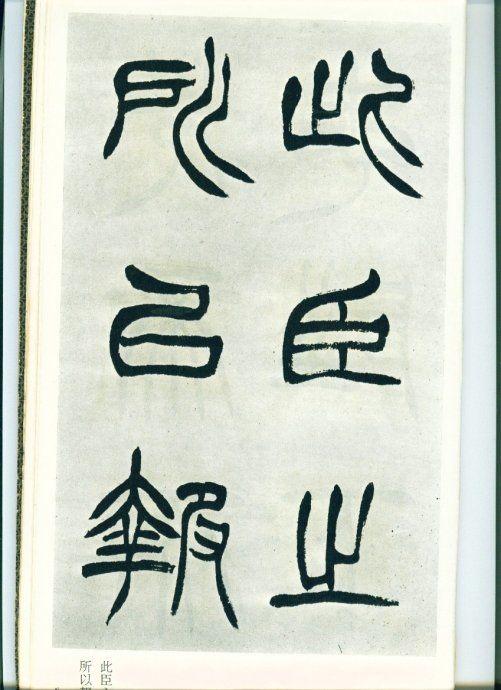 此臣之
所以報
此臣
所以